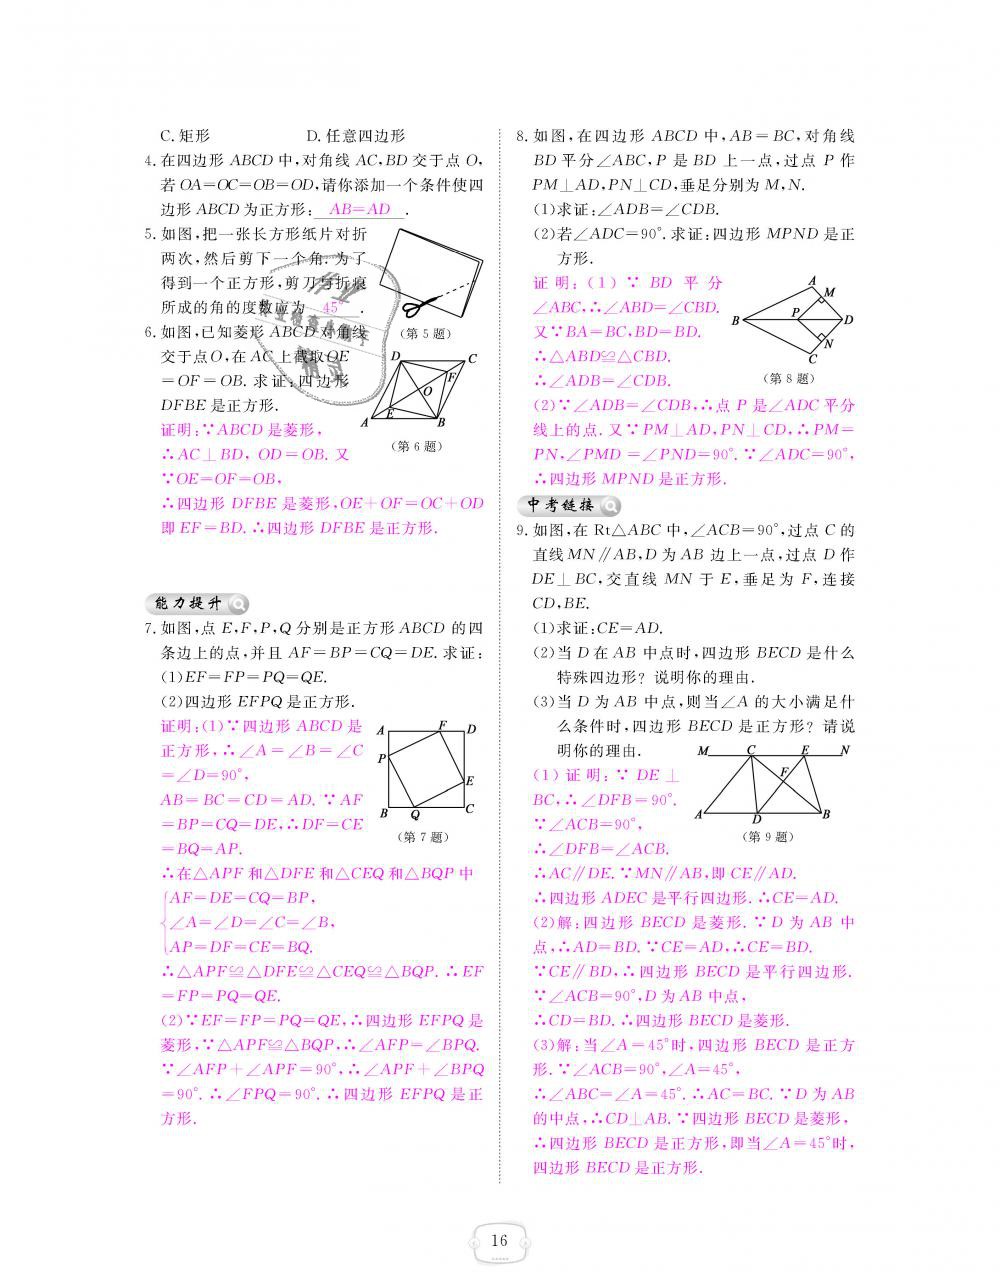 C. 矩形 D. 任意四边形
4. 在四边形 ABCD 中,对角线 AC,BD 交于点 O,
若 OA=OC=OB=OD,请你添加一个条件使四
边形 ABCD 为正方形: AB=AD .
5. 如图,把一张长方形纸片对折
两次,然后剪下一个角. 为了
得到一个正方形,剪刀与折痕
所成的角的度数应为 45° .
(第 5 题)
6. 如图,已知菱形 ABCD 对角线
交于点O,在 AC 上截取OE
=OF=OB. 求证:四边形
DFBE 是正方形.
D C F O E A B
(第 6 题)
证明:∵ABCD 是菱形,
∴AC⊥BD, OD=OB. 又
∵OE=OF=OB,
∴四边形 DFBE 是菱形,OE+OF=OC+OD
即 EF=BD. ∴四边形 DFBE 是正方形.
能力提升
7. 如图,点 E,F,P,Q 分别是正方形 ABCD 的四
条边上的点,并且 AF=BP=CQ=DE. 求证:
(1)EF=FP=PQ=QE.
(2)四边形 EFPQ 是正方形.
证明:(1)∵四边形 ABCD 是
正方形,∴∠A=∠B=∠C
=∠D=90°,
AB=BC=CD=AD. ∵AF
=BP=CQ=DE,∴DF=CE
=BQ=AP.
A F D P E B Q C
(第 7 题)
∴在△APF 和△DFE 和△CEQ 和△BQP 中
AF=DE=CQ=BP,
∠A=∠D=∠C=∠B,
AP=DF=CE=BQ.
∴△APF≌△DFE≌△CEQ≌△BQP. ∴EF
=FP=PQ=QE.
(2)∵EF=FP=PQ=QE,∴四边形 EFPQ 是
菱形,∵△APF≌△BQP,∴∠AFP=∠BPQ.
∵∠AFP+∠APF=90°,∴∠APF+∠BPQ
=90°. ∴∠FPQ=90°. ∴四边形 EFPQ 是正
方形.
8. 如图,在四边形 ABCD 中,AB=BC,对角线
BD 平分∠ABC,P 是 BD 上一点,过点 P 作
PM⊥AD,PN⊥CD,垂足分别为 M,N.
(1)求证:∠ADB=∠CDB.
(2)若∠ADC=90°.求证:四边形 MPND 是正
方形.
证明:(1)∵ BD 平分
∠ABC,∴∠ABD=∠CBD.
又∵BA=BC,BD=BD.
∴△ABD≌△CBD.
∴∠ADB=∠CDB.
A M P B D N C
(第 8 题)
(2)∵∠ADB=∠CDB,∴点 P 是∠ADC 平分
线上的点. 又∵PM⊥AD,PN⊥CD,∴PM=
PN,∠PMD =∠PND=90°. ∵∠ADC=90°,
∴四边形 MPND 是正方形.
中考链接
9. 如图,在 Rt△ABC 中,∠ACB=90°,过点 C 的
直线 MN∥AB,D 为 AB 边上一点,过点 D 作
DE⊥BC,交直线 MN 于 E,垂足为 F,连接
CD,BE.
(1)求证:CE=AD.
(2)当 D 在 AB 中点时,四边形 BECD 是什么
特殊四边形? 说明你的理由.
(3)当 D 为 AB 中点,则当∠A 的大小满足什
么条件时,四边形 BECD 是正方形? 请说
明你的理由.
M C E N F A D B
(第 9 题)
(1)证明:∵DE⊥
BC,∴∠DFB=90°.
∵∠ACB=90°,
∴∠DFB=∠ACB.
∴AC∥DE. ∵MN∥AB,即 CE∥AD.
∴四边形 ADEC 是平行四边形. ∴CE=AD.
(2)解:四边形 BECD 是菱形. ∵D 为 AB 中
点,∴AD=BD. ∵CE=AD,∴CE=BD.
∵CE∥BD,∴四边形 BECD 是平行四边形.
∵∠ACB=90°,D 为 AB 中点,
∴CD=BD. ∴四边形 BECD 是菱形.
(3)解:当∠A=45°时,四边形 BECD 是正方
形. ∵∠ACB=90°,∠A=45°,
∴∠ABC=∠A=45°. ∴AC=BC. ∵D 为 AB
的中点,∴CD⊥AB. ∵四边形 BECD 是菱形,
∴四边形 BECD 是正方形,即当∠A=45°时,
四边形 BECD 是正方形.
16